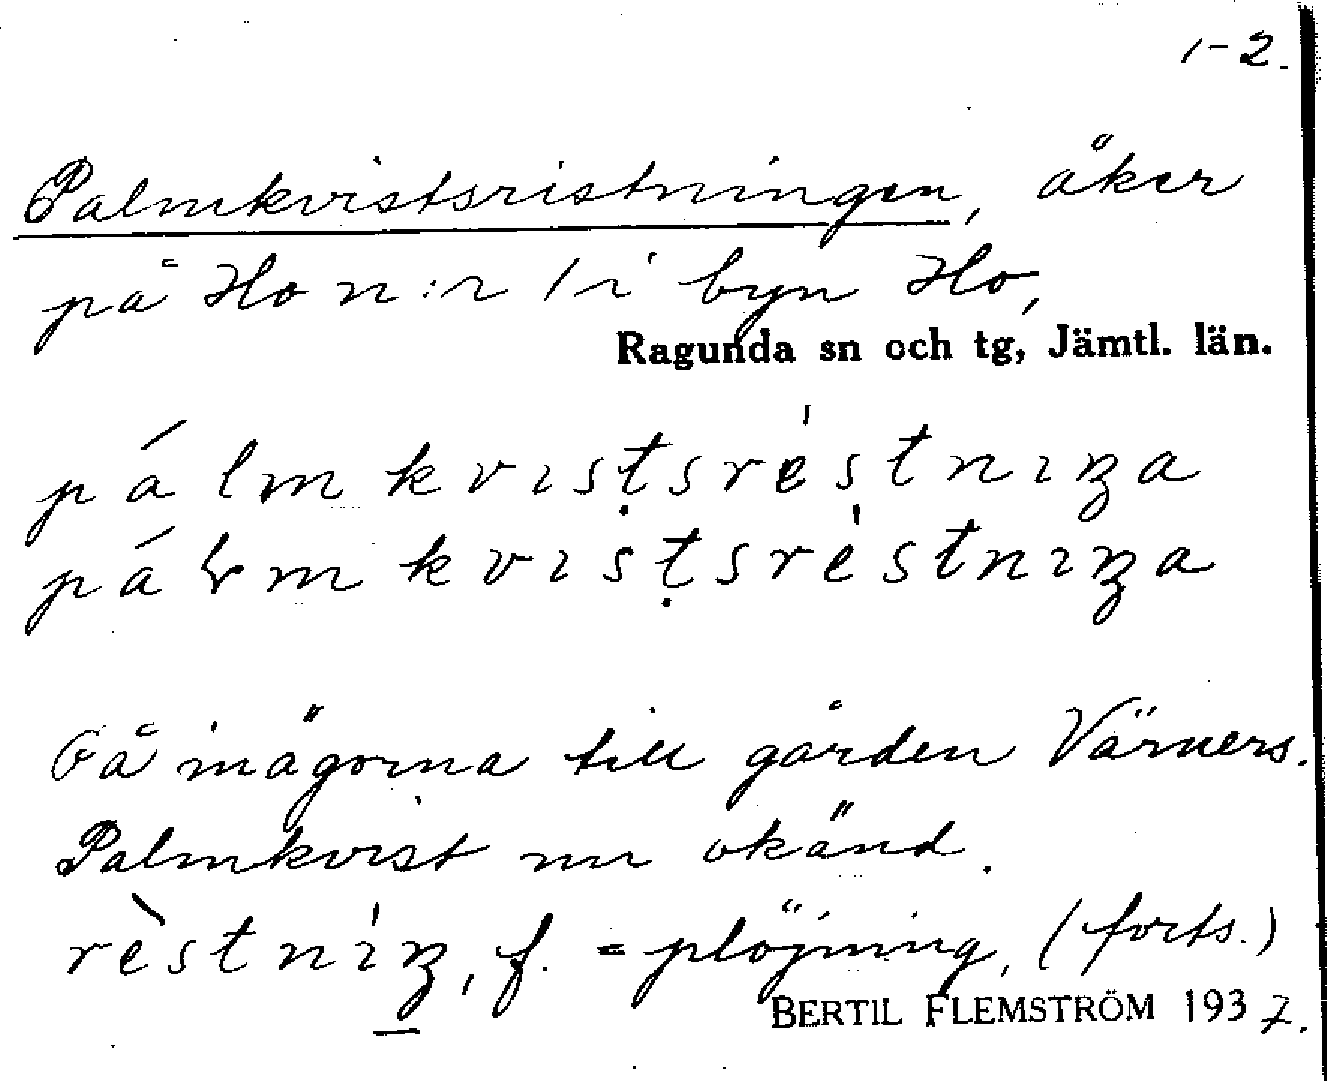 1-2.
Palmkvistsristningen, åker
på Ho n:r 1 i byn Ho,
Ragunda sn och tg, Jämtl. län.
pálmkvısṭsrèstnıŋa
páɽmkvısṭsrèstnıŋa
På inägorna till gården Värners.
Palmkvist nu okänd.
rèstnıŋ, f. = plöjning, (forts.)
BERTIL FLEMSTRÖM 1937.